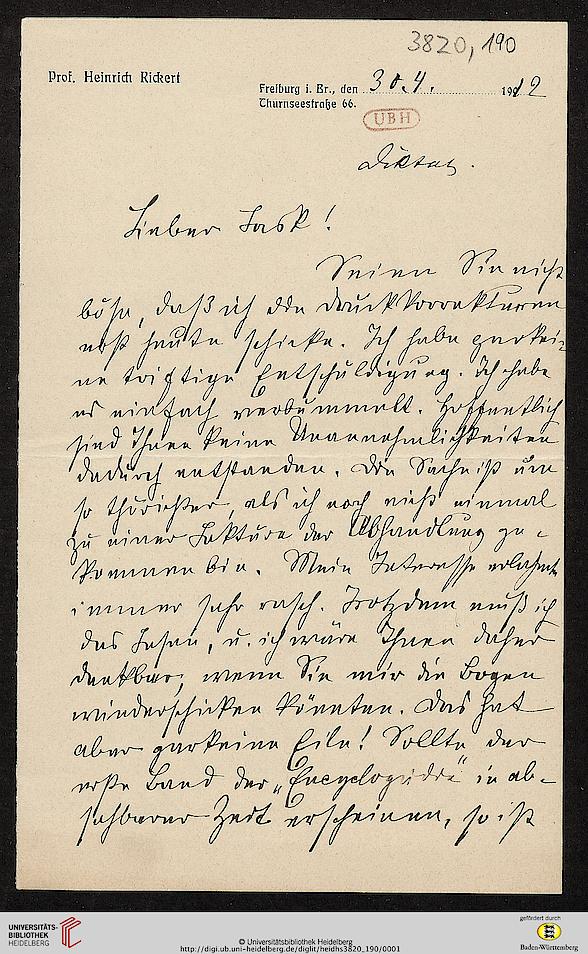 3820, 190
Prof. Heinrich Rickert
Freiburg i. Br., den 30.4. 1912
Thurnseestraße 66.
UBH
Diktat.
Lieber Lask!
Seien Sie nicht
böse, daß ich die Druckkorrekturen
erst heute schicke. Ich habe gar kei-
ne triftige Entschuldigung. Ich habe
es einfach verbummelt. Hoffentlich
sind Ihnen keine Unannehmlichkeiten
dadurch entstanden. Die Sache ist um
so thörichter, als ich noch nicht einmal
zu einer Lektüre der Abhandlung ge-
kommen bin. Mein Interesse erlahmte
immer sehr rasch. Trotzdem muß ich
das lesen, u. ich wäre Ihnen daher
dankbar, wenn Sie mir die Bogen
wiederschicken könnten. Das hat
aber gar keine Eile! Sollte der
erste Band der „Encyclopädie" in ab-
sehbarer Zeit erscheinen, so ist
UNIVERSITÄTS-
BIBLIOTHEK
HEIDELBERG
© Universitätsbibliothek Heidelberg
http://digi.ub.uni-heidelberg.de/diglit/heidhs3820_190/0001
gefördert durch
Baden-Württemberg